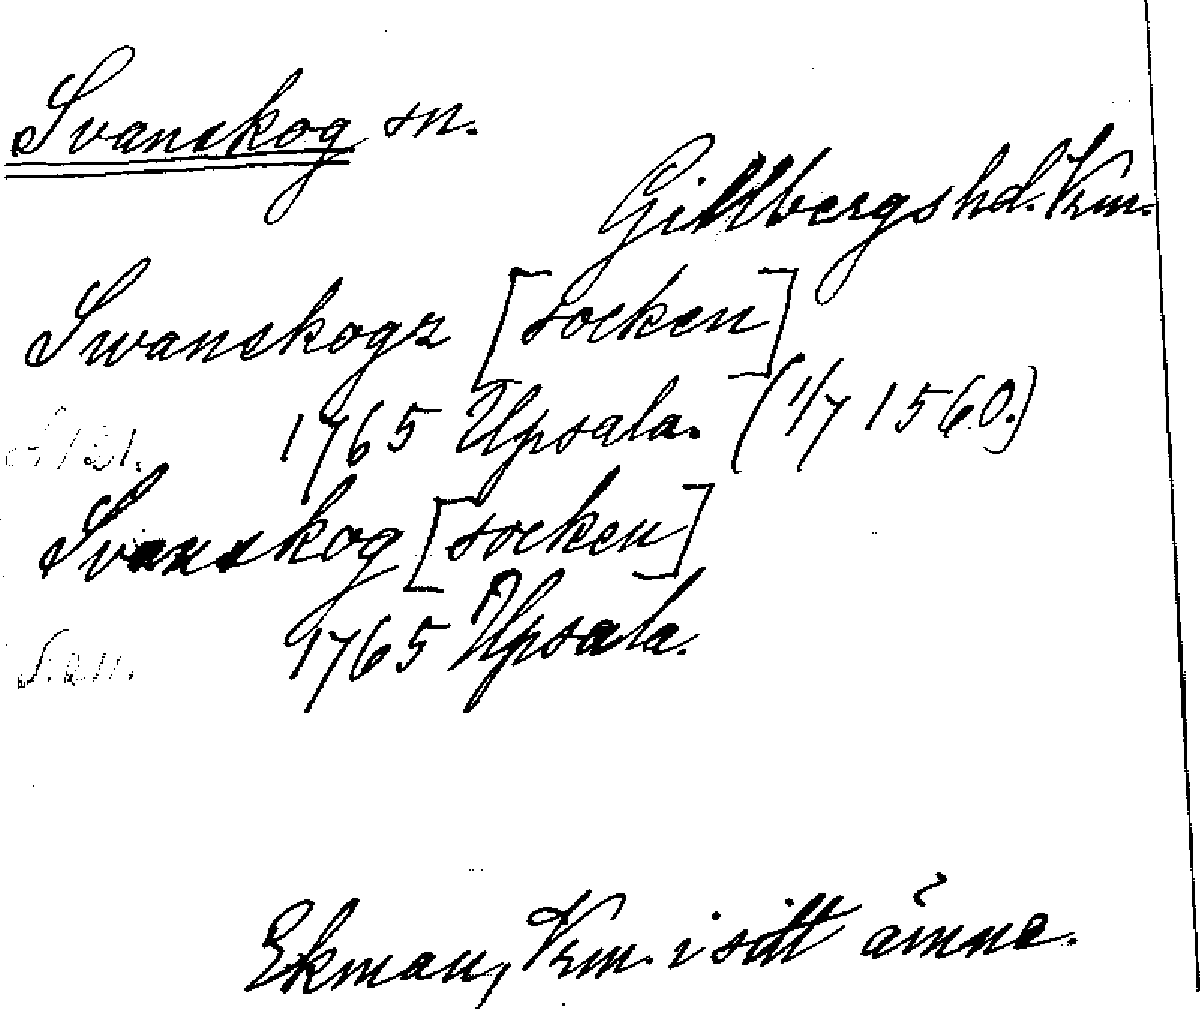 Svanskog sn.
Gillbergs hd. Vrm.
Swanskogz [socken]
s. 121. 1765 Upsala. (1/7 1560.)
Svanskog [socken]
1765 Upsala.
Ekman, Vrm. i sitt ämne.